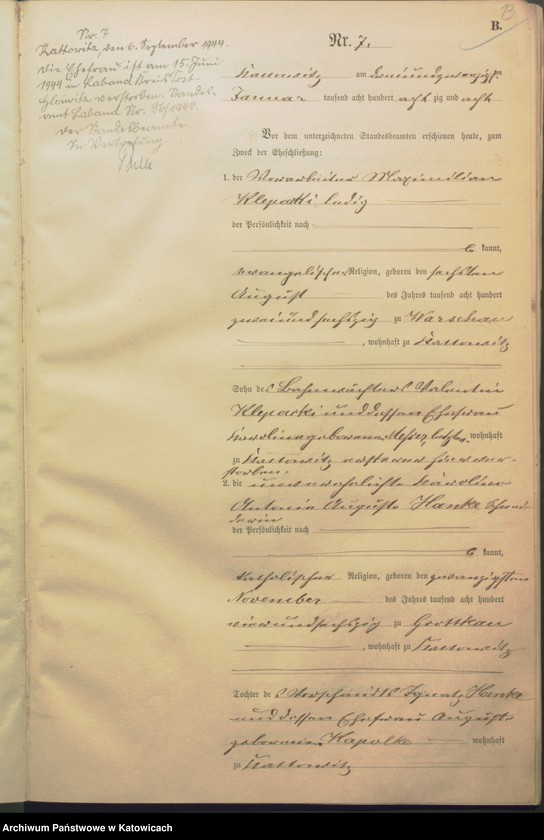 B.
13
Nr. 7
Kattowitz, den 6. September 1944.
Die Ehefrau ist am 15. Juni
1944 in Laband Kreis Tost-
Gleiwitz verstorben. Standes-
amt Laband Nr. 36/1944.
Der Standesbeamte
In Vertretung
Nr. 7.
Kattowitz am dreiundzwanzigsten
Januar tausend acht hundert achtzig und acht
Vor dem unterzeichneten Standesbeamten erschienen heute, zum
Zweck der Eheschließung:
1. der Vorarbeiter Maximilian
Kleparski, ledig
der Persönlichkeit nach
kannt,
evangelischer Religion, geboren den sechsten
August des Jahres tausend acht hundert
zweiundsechszig zu Warschau
, wohnhaft zu Kattowitz
Sohn des Bahnwächters Valentin
Kleparski und dessen Ehefrau
Karoline geborene letztere wohnhaft
zu Kattowitz ersterer hier ver-
storben.
2. die unverehelichte Karoline
Antonie Auguste Hanke Schnei-
derin
der Persönlichkeit nach
kannt,
katholischer Religion, geboren den zwanzigsten
November des Jahres tausend acht hundert
vierundsechszig zu Grottkau
, wohnhaft zu Kattowitz
Tochter des Ignatz Hanke
und dessen Ehefrau Auguste
geborenen Kapolke wohnhaft
zu Kattowitz
Archiwum Państwowe w Katowicach